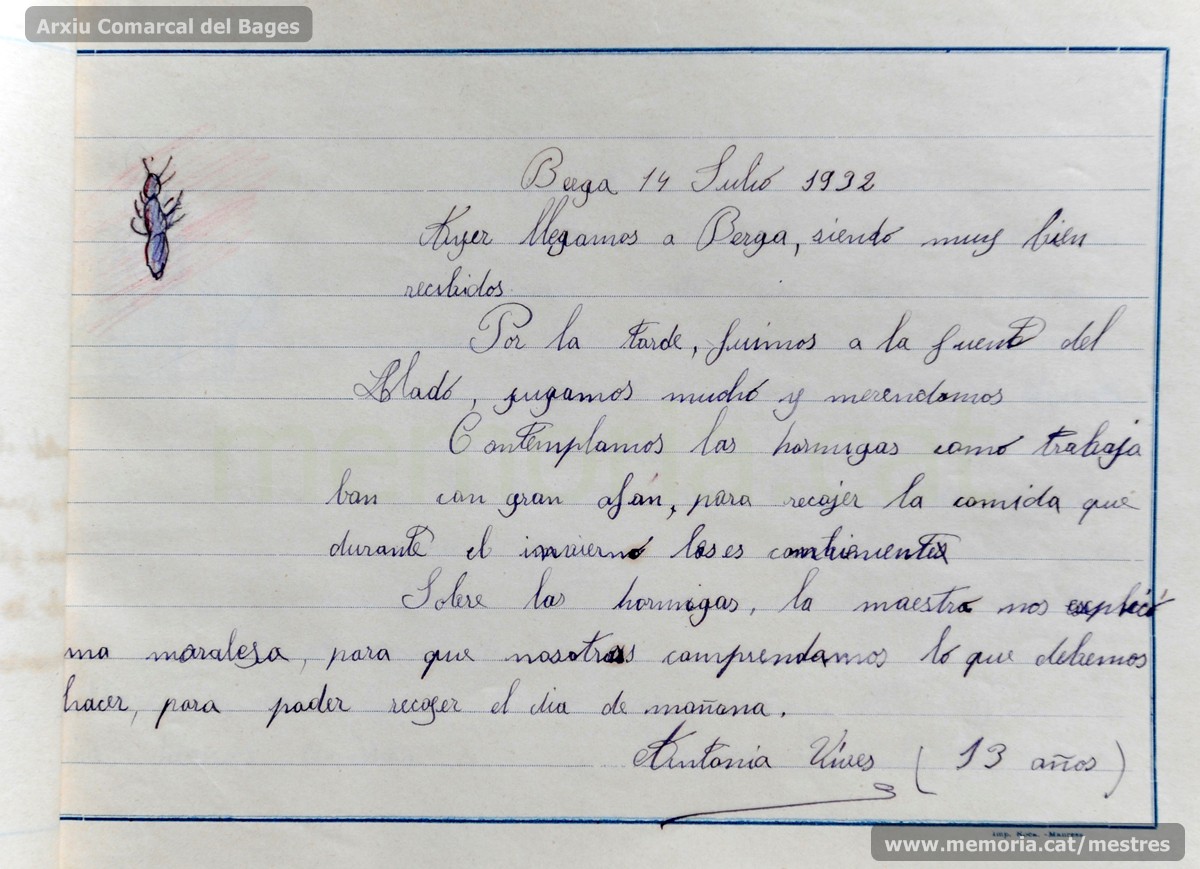 Arxiu Comarcal del Bages
Berga 14 Julio 1932
Ayer llegamos a Berga, siendo muy bien
recibidos.
Por la tarde, fuimos a la fuente del
Lladó, jugamos mucho y merendamos
Contemplamos las hormigas como trabaja
ban con gran afán, para recojer la comida que
durante el invierno les es
Sobre las hormigas, la maestra nos esplicó
una moralesa, para que nosotras comprendamos lo que debemos
hacer, para poder recoger el dia de mañana.
Antonia Vives (13 años)
Imp. -Manresa
www.memoria.cat/mestres